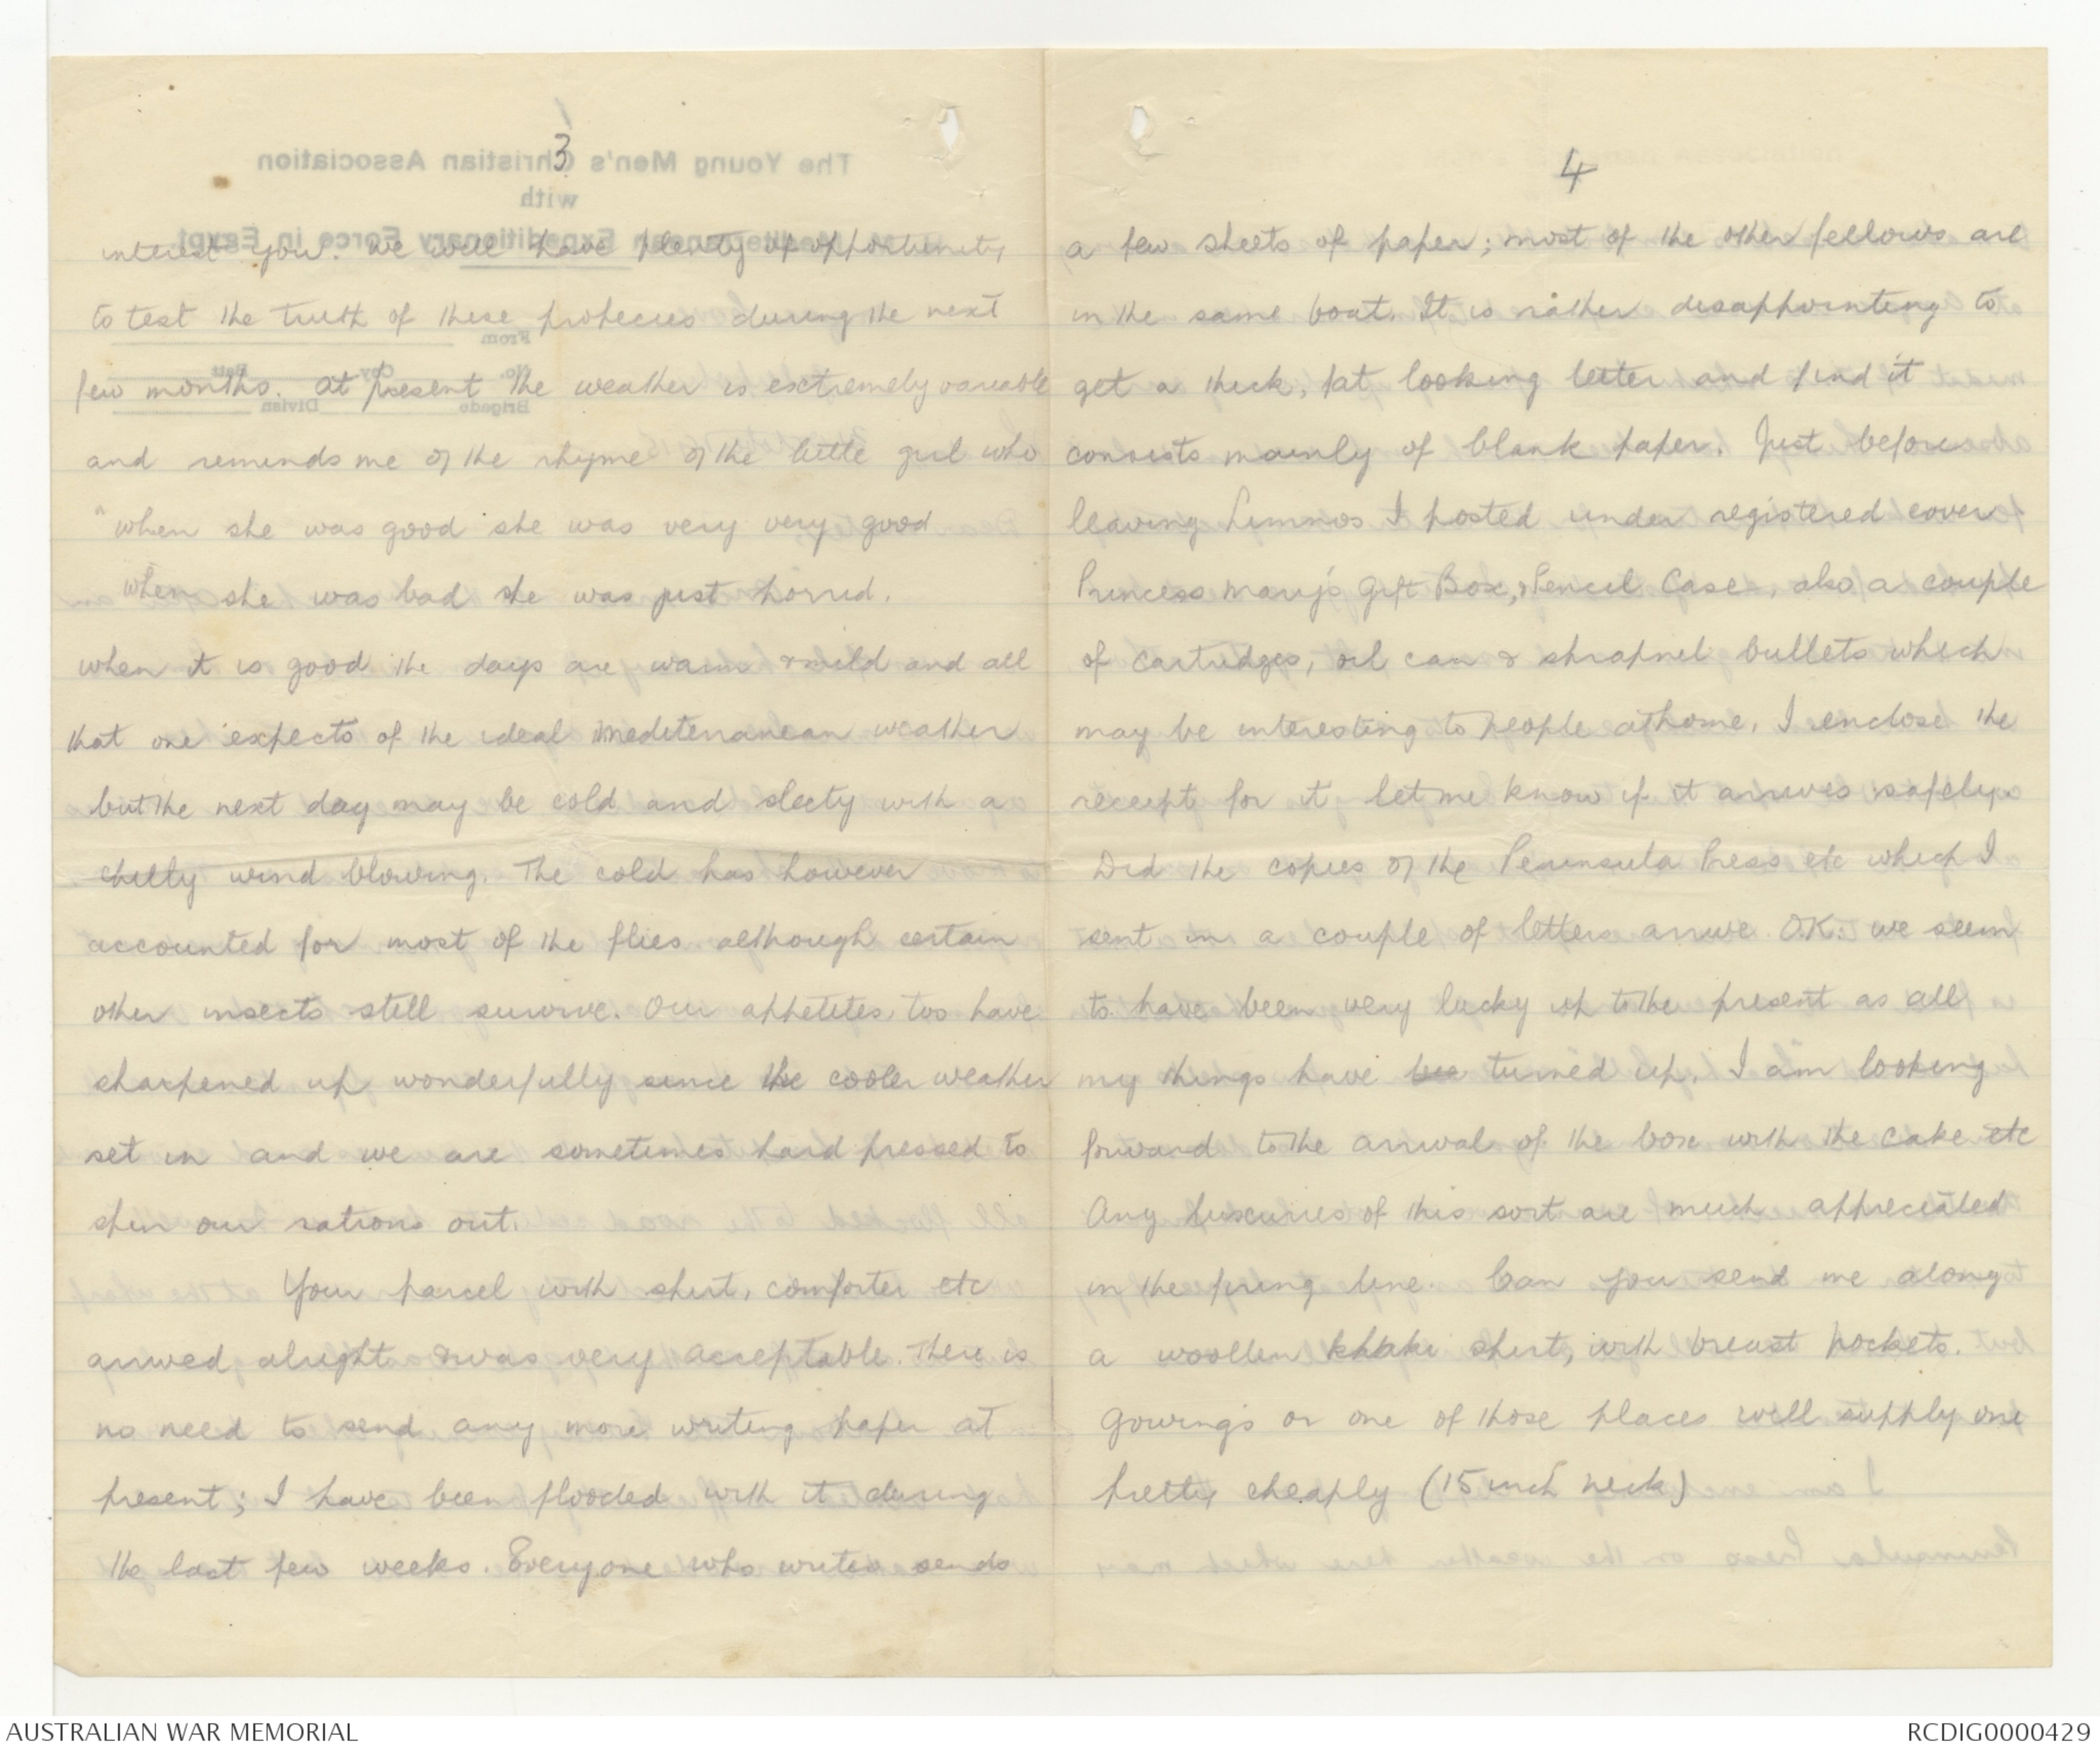 3
interest you. We will have plenty of opportunity
to test the truth of these prophecies during the next
few months. At present the weather is extremely variable
and reminds me of the rhyme of the little girl who
"when she was good she was very very good
when she was bad she was just horrid.
when it is good the days are warm & mild and all
that one expects of the ideal Mediterranean weather
but the next day may be cold and sleety with a
chilly wind blowing. The cold has however
accounted for most of the flies although certain
other insects still survive. Our appetites too have
sharpened up wonderfully since the cooler weather
set in and we are sometimes hard pressed to
spin our rations out.
Your parcel with shirt, comforter etc
arrived alright & was very acceptable. There is
no need to send any more writing paper at
present; I have been flooded with it during
the last few weeks. Everyone who writes sends
4
a few sheets of paper; most of the other fellows are
in the same boat. It is rather disappointing to
get a thick, fat looking letter and find it
consists mainly of blank paper. Just before
leaving Limnos I posted under registered cover
Princess Mary's Gift Box, & Pencil Case, also a couple
of cartridges, oil can & shrapnel bullets which
may be interesting to people at home. I enclose the
receipt for it let me know if it arrives safely.
Did the copies of the Peninsula Press etc which I
sent in a couple of letters arrive O.K. we seem
to have been very lucky up to the present as all
my things have turned up. I am looking
forward to the arrival of the box with the cake etc
Any luxuries of this sort are much appreciated
in the firing line. Can you send me along
a woollen khaki shirt, with breast pockets.
Gowings or one of those places will supply one
pretty cheaply (15 inch neck)
AUSTRALIAN WAR MEMORIAL
RCDIG0000429